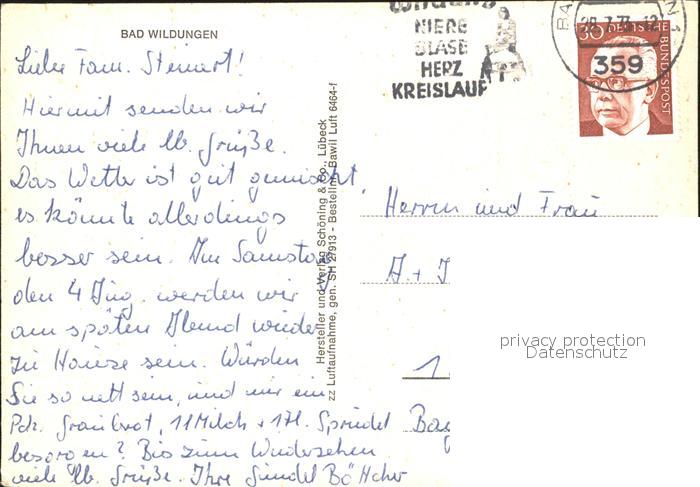 BAD WILDUNGEN
Liebe Fam. Steinert!
Hiermit senden wir
Ihnen viele lb. Grüße.
Das Wetter ist gut gemischt,
es könnte allerdings
besser sein. Am Samstag
den 4 Aug. werden wir
am späten Abend wieder
zu Hause sein. Würden
Sie so nett sein, und mir ein
Pck. Graubrot, 1 l Milch + 1 Fl. Sprudel
besorgen? Bis zum Wiedersehen
viele lb. Grüße. Ihre Gündel Böttcher
Hersteller und Verlag Schöning & Co., Lübeck
zz Luftaufnahme, gen. SH 27913 - Bestellnr. Bawil Luft 6464-f
NIERE
BLASE
HERZ
KREISLAUF
359
30 DEUTSCHE BUNDESPOST
Herrn und Frau
A + I
1
privacy protection
Datenschutz